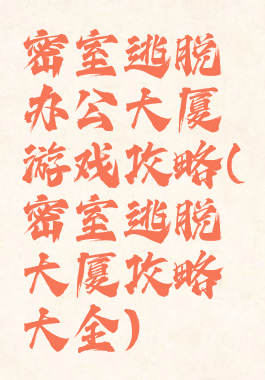 密室逃脱
办公大厦
游戏攻略(
密室逃脱
大厦攻略
大全)